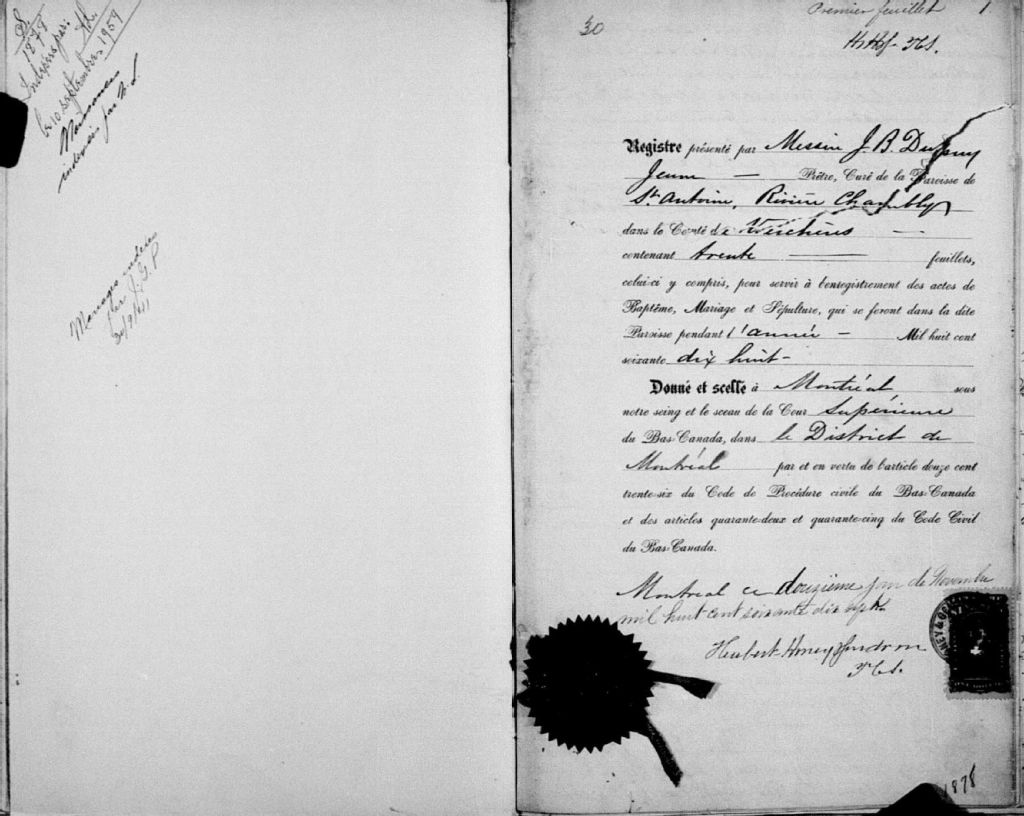 S.
1878
Indexées par:
le 10 septembre 1959
Naissances
indexées par
Mariages indexés
par J. G. P
30
Premier feuillet 1
Registre présenté par Messire J. B. Dupuy
Jeune — Prêtre, Curé de la Paroisse de
St. Antoine, Rivière Chambly
dans le Comté de Verchères —
contenant trente — feuillets,
celui-ci y compris, pour servir à l'enregistrement des actes de
Baptême, Mariage et Sépulture, qui se feront dans la dite
Paroisse pendant l'année — Mil huit cent
soixante dix huit -
Donné et scellé à Montréal sous
notre seing et le sceau de la Cour Supérieure
du Bas-Canada, dans le District de
Montréal par et en vertu de l'article douze cent
trente-six du Code de Procédure civile du Bas-Canada
et des articles quarante-deux et quarante-cinq du Code Civil
du Bas-Canada.
Montreal ce douzième jour de Novembre
mil huit cent soixante dix sept.
Hubert Honey Gendron
1878